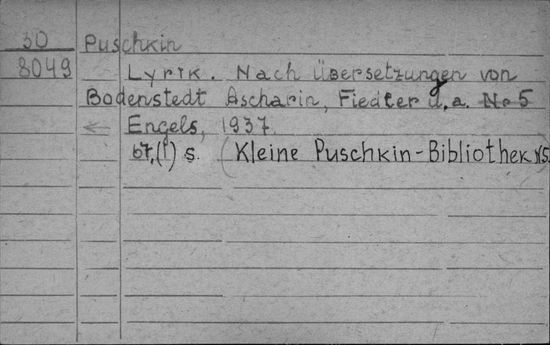 30 Puschkin
8049 Lyrik. Nach Übersetzungen von
Bodenstedt Ascharin, Fiedler u. a. No 5
← Engels, 1937.
67,(1) s. (Kleine Puschkin-Bibliothek N5